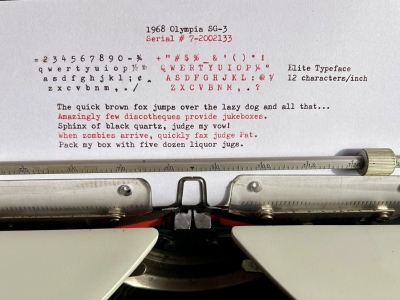 1968 Olympia SG-3
Serial # 7-2002133
= 2 3 4 5 6 7 8 9 0 - ¾ + " # $ % _ & ' ( ) * !
q w e r t y u i o p ½ Q W E R T Y U I O P ¼ ° Elite Typeface
a s d f g h j k l ; ¢ A S D F G H J K L : @ 12 characters/inch
z x c v b n m , . / Z X C V B N M , . ?
The quick brown fox jumps over the lazy dog and all that...
Amazingly few discotheques provide jukeboxes.
Sphinx of black quartz, judge my vow!
When zombies arrive, quickly fax judge Pat.
Pack my box with five dozen liquor jugs.